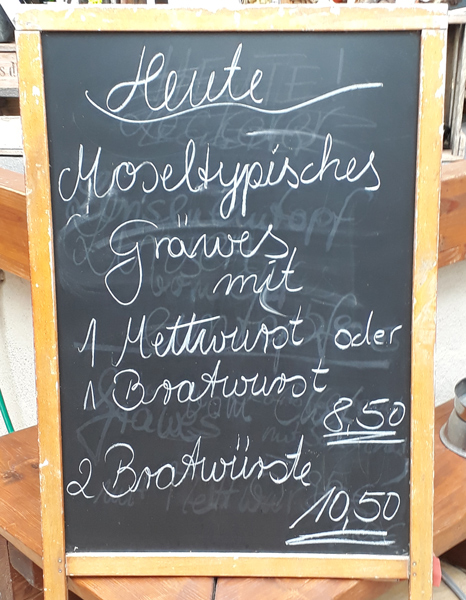 Heute
Moseltypisches
Gräwes
mit
1 Mettwurst oder
1 Bratwurst
8,50
2 Bratwürste
10,50